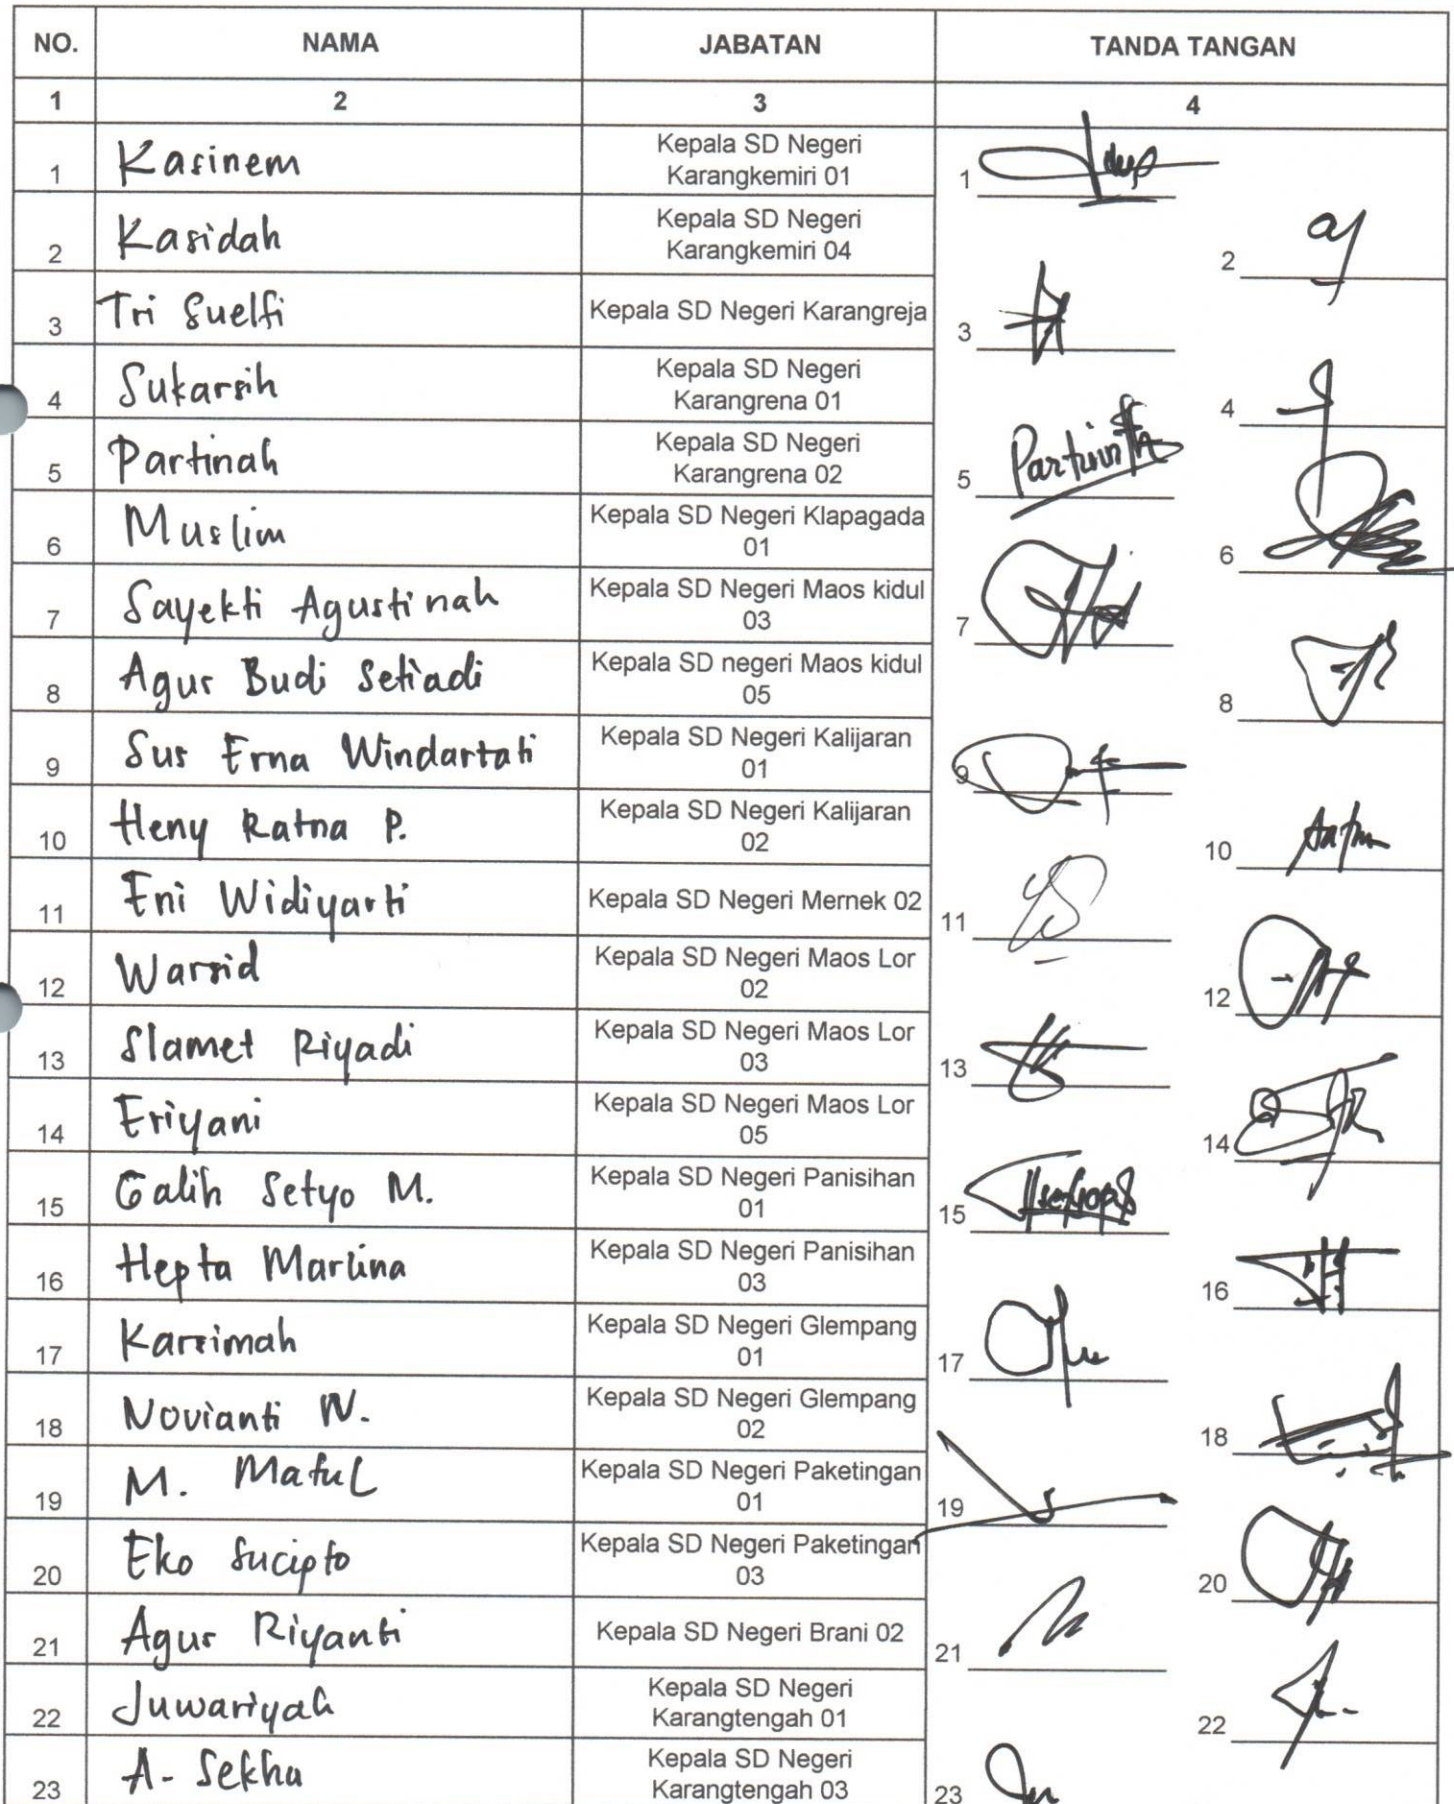 NO. NAMA JABATAN TANDA TANGAN
1 2 3 4
1 Kasinem Kepala SD Negeri Karangkemiri 01 1
2 Kasidah Kepala SD Negeri Karangkemiri 04 2
3 Tri Suelfi Kepala SD Negeri Karangreja 3
4 Sukarsih Kepala SD Negeri Karangrena 01 4
5 Partinah Kepala SD Negeri Karangrena 02 5
6 Muslim Kepala SD Negeri Klapagada 01 6
7 Sayekti Agustinah Kepala SD Negeri Maos kidul 03 7
8 Agus Budi Setiadi Kepala SD negeri Maos kidul 05 8
9 Sus Erna Windartati Kepala SD Negeri Kalijaran 01 9
10 Heny Ratna P. Kepala SD Negeri Kalijaran 02 10
11 Eni Widiyarti Kepala SD Negeri Mernek 02 11
12 Warsid Kepala SD Negeri Maos Lor 02 12
13 Slamet Riyadi Kepala SD Negeri Maos Lor 03 13
14 Eriyani Kepala SD Negeri Maos Lor 05 14
15 Galih Setyo M. Kepala SD Negeri Panisihan 01 15
16 Hepta Marlina Kepala SD Negeri Panisihan 03 16
17 Karsimah Kepala SD Negeri Glempang 01 17
18 Novianti W. Kepala SD Negeri Glempang 02 18
19 M. Kepala SD Negeri Paketingan 01 19
20 Eko Sucipto Kepala SD Negeri Paketingan 03 20
21 Agus Riyanti Kepala SD Negeri Brani 02 21
22 Juwariyah Kepala SD Negeri Karangtengah 01 22
23 A. Kepala SD Negeri Karangtengah 03 23